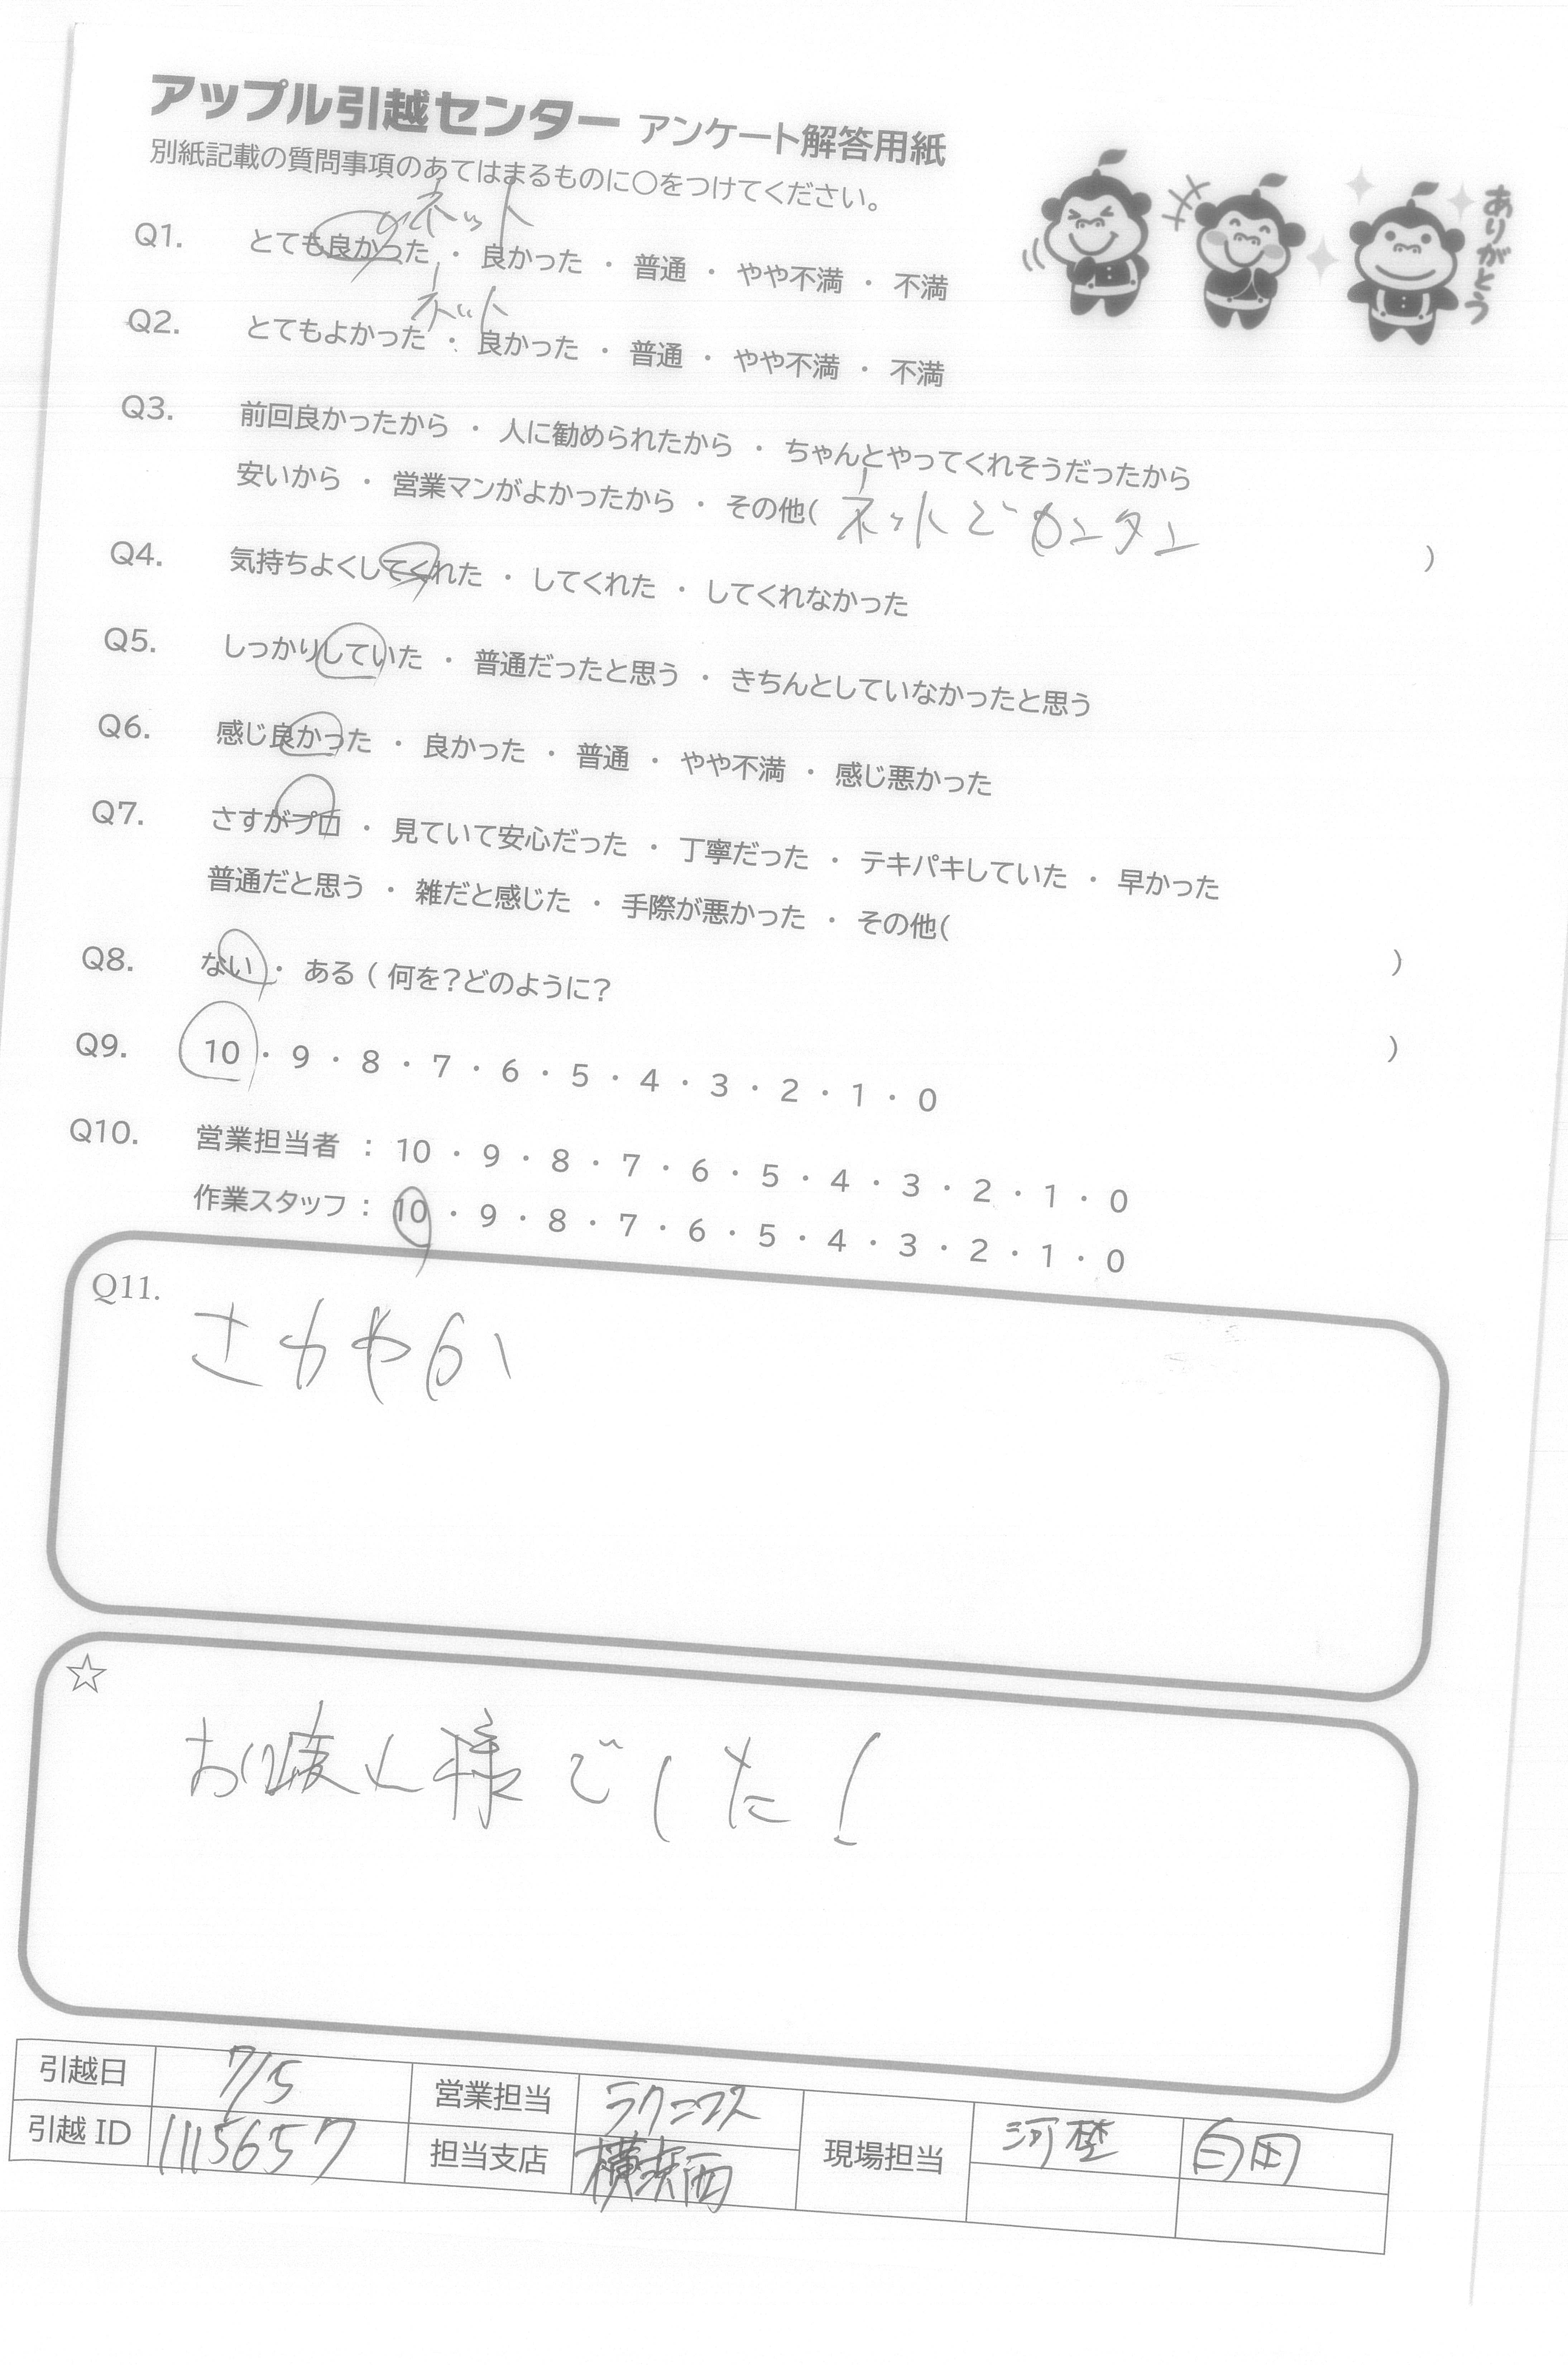 アップル引越センター アンケート解答用紙
別紙記載の質問事項のあてはまるものに○をつけてください。
ありがとう
ネット
Q1. とても良かった ・ 良かった ・ 普通 ・ やや不満 ・ 不満
ネット
Q2. とてもよかった ・ 良かった ・ 普通 ・ やや不満 ・ 不満
Q3. 前回良かったから ・ 人に勧められたから ・ ちゃんとやってくれそうだったから
安いから ・ 営業マンがよかったから ・ その他( ネットでカンタン )
Q4. 気持ちよくしてくれた ・ してくれた ・ してくれなかった
Q5. しっかりしていた ・ 普通だったと思う ・ きちんとしていなかったと思う
Q6. 感じ良かった ・ 良かった ・ 普通 ・ やや不満 ・ 感じ悪かった
Q7. さすがプロ ・ 見ていて安心だった ・ 丁寧だった ・ テキパキしていた ・ 早かった
普通だと思う ・ 雑だと感じた ・ 手際が悪かった ・ その他( )
Q8. ない ・ ある ( 何を?どのように? )
Q9. 10 ・ 9 ・ 8 ・ 7 ・ 6 ・ 5 ・ 4 ・ 3 ・ 2 ・ 1 ・ 0
Q10. 営業担当者 : 10 ・ 9 ・ 8 ・ 7 ・ 6 ・ 5 ・ 4 ・ 3 ・ 2 ・ 1 ・ 0
作業スタッフ : 10 ・ 9 ・ 8 ・ 7 ・ 6 ・ 5 ・ 4 ・ 3 ・ 2 ・ 1 ・ 0
Q11. さわやか
☆ お疲れ様でした!
引越日 7/5 営業担当 ラクニコス 現場担当 河埜 白田
引越 ID 1115657 担当支店 横浜西